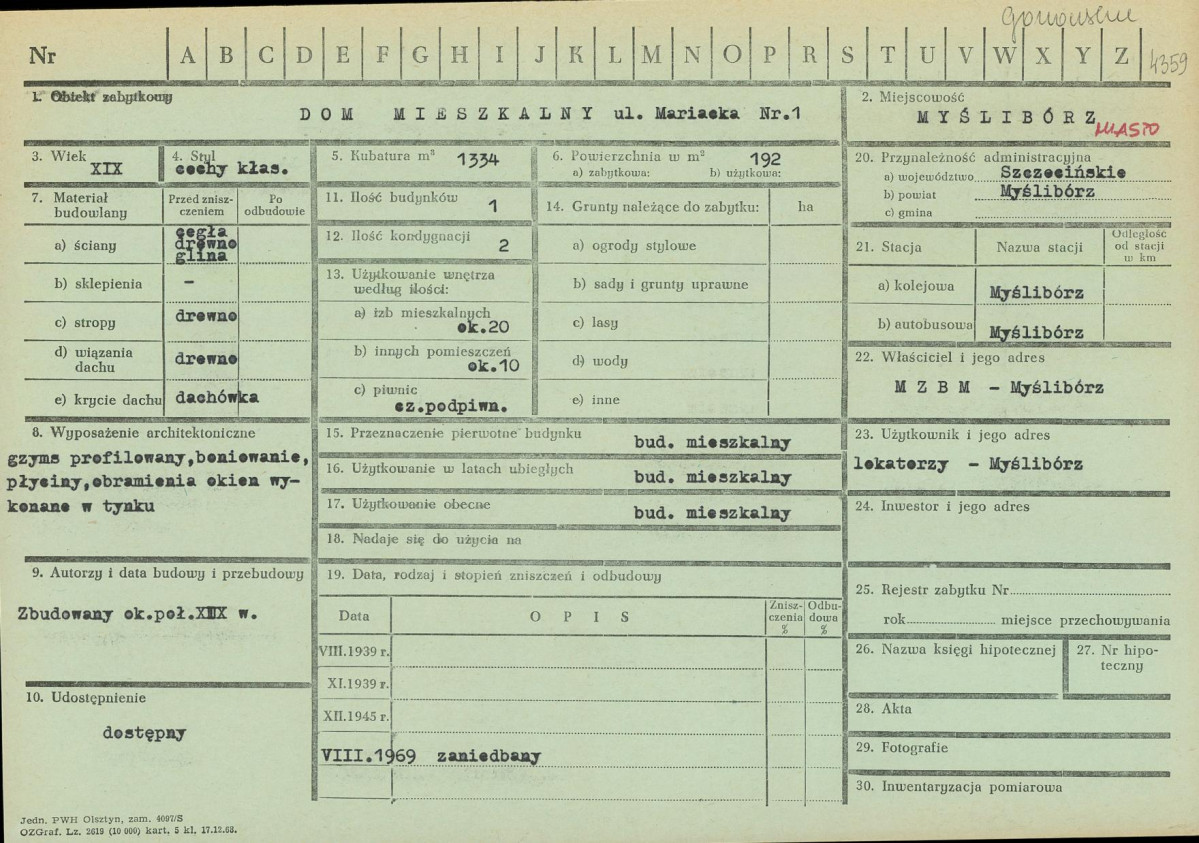 Nr A B C D E F G H I J K L M N O P R S T U V W X Y Z 4359
1. Obiekt zabytkowy
DOM MIESZKALNY ul. Mariacka Nr.1
2. Miejscowość
MYŚLIBÓRZ
MIASTO
3. Wiek
XIX
4. Styl
cechy kłas.
5. Kubatura m³ 1334
6. Powierzchnia w m² 192
a) zabytkowa: b) użytkowa:
7. Materiał budowlany
Przed znisz-
czeniem
Po
odbudowie
a) ściany
cegła
drewno
glina
b) sklepienia –
c) stropy drewno
d) wiązania
dachu
drewno
e) krycie dachu dachówka
8. Wyposażenie architektoniczne
gzyms profilowany,boniowanie,
płyciny,obramienia okien wy-
konane w tynku
9. Autorzy i data budowy i przebudowy
Zbudowany ok.poł.XIX w.
10. Udostępnienie
dostępny
11. Ilość budynków 1
12. Ilość kondygnacji 2
13. Użytkowanie wnętrza
według ilości:
a) izb mieszkalnych
ok.20
b) innych pomieszczeń
ok.10
c) piwnic
cz.podpiwn.
14. Grunty należące do zabytku: ha
a) ogrody stylowe
b) sady i grunty uprawne
c) lasy
d) wody
e) inne
15. Przeznaczenie pierwotne budynku bud. mieszkalny
16. Użytkowanie w latach ubiegłych bud. mieszkalny
17. Użytkowanie obecne bud. mieszkalny
18. Nadaje się do użycia na
19. Data, rodzaj i stopień zniszczeń i odbudowy
Data OPIS
Znisz-
czenia
%
Odbu-
dowa
%
VIII.1939 r.
XI.1939 r.
XII.1945 r.
VIII.1969 zaniedbany
20. Przynależność administracyjna
a) województwo Szczecińskie
b) powiat Myślibórz
c) gmina
21. Stacja Nazwa stacji
Odległość
od stacji
w km
a) kolejowa Myślibórz
b) autobusowa Myślibórz
22. Właściciel i jego adres
M Z B M – Myślibórz
23. Użytkownik i jego adres
lokatorzy – Myślibórz
24. Inwestor i jego adres
25. Rejestr zabytku Nr
rok miejsce przechowywania
26. Nazwa księgi hipotecznej
27. Nr hipo-
teczny
28. Akta
29. Fotografie
30. Inwentaryzacja pomiarowa
Jedn. PWH Olsztyn, zam. 4097/S
OZGraf. Lz. 2619 (10 000) kart, 5 kl, 17.12.68.